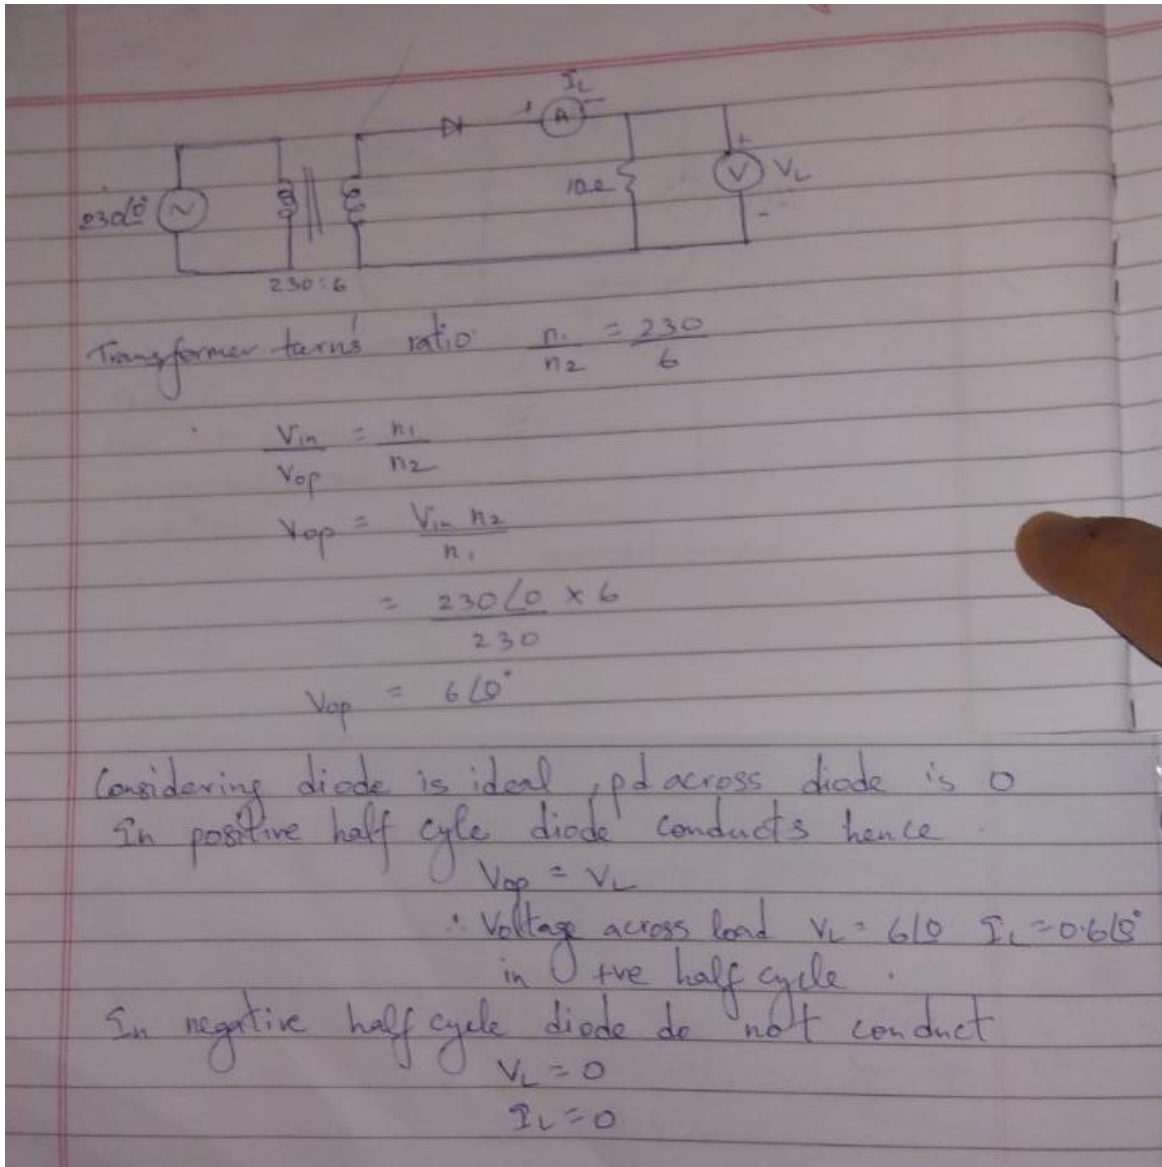 I_L
+ A -
230∠0° ~ 10Ω + V V_L
-
230:6
Transformer turn's ratio n₁/n₂ = 230/6
Vin/Vop = n₁/n₂
Vop = Vin n₂/n₁
= 230∠0 × 6/230
Vop = 6∠0°
Considering diode is ideal, pd across diode is 0
In positive half cyle diode conducts hence.
Vop = V_L
∴ Voltage across load V_L = 6∠0 I_L = 0.6∠0°
in +ve half cycle.
In negative half cycle diode do not conduct
V_L = 0
I_L = 0